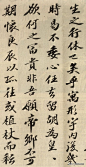 生之行休已矣乎寓形宇內復幾
時曷不委心任去留胡為皇
欲何之富貴非吾願帝鄉不可
期懷良辰以孤往或植杖而耘